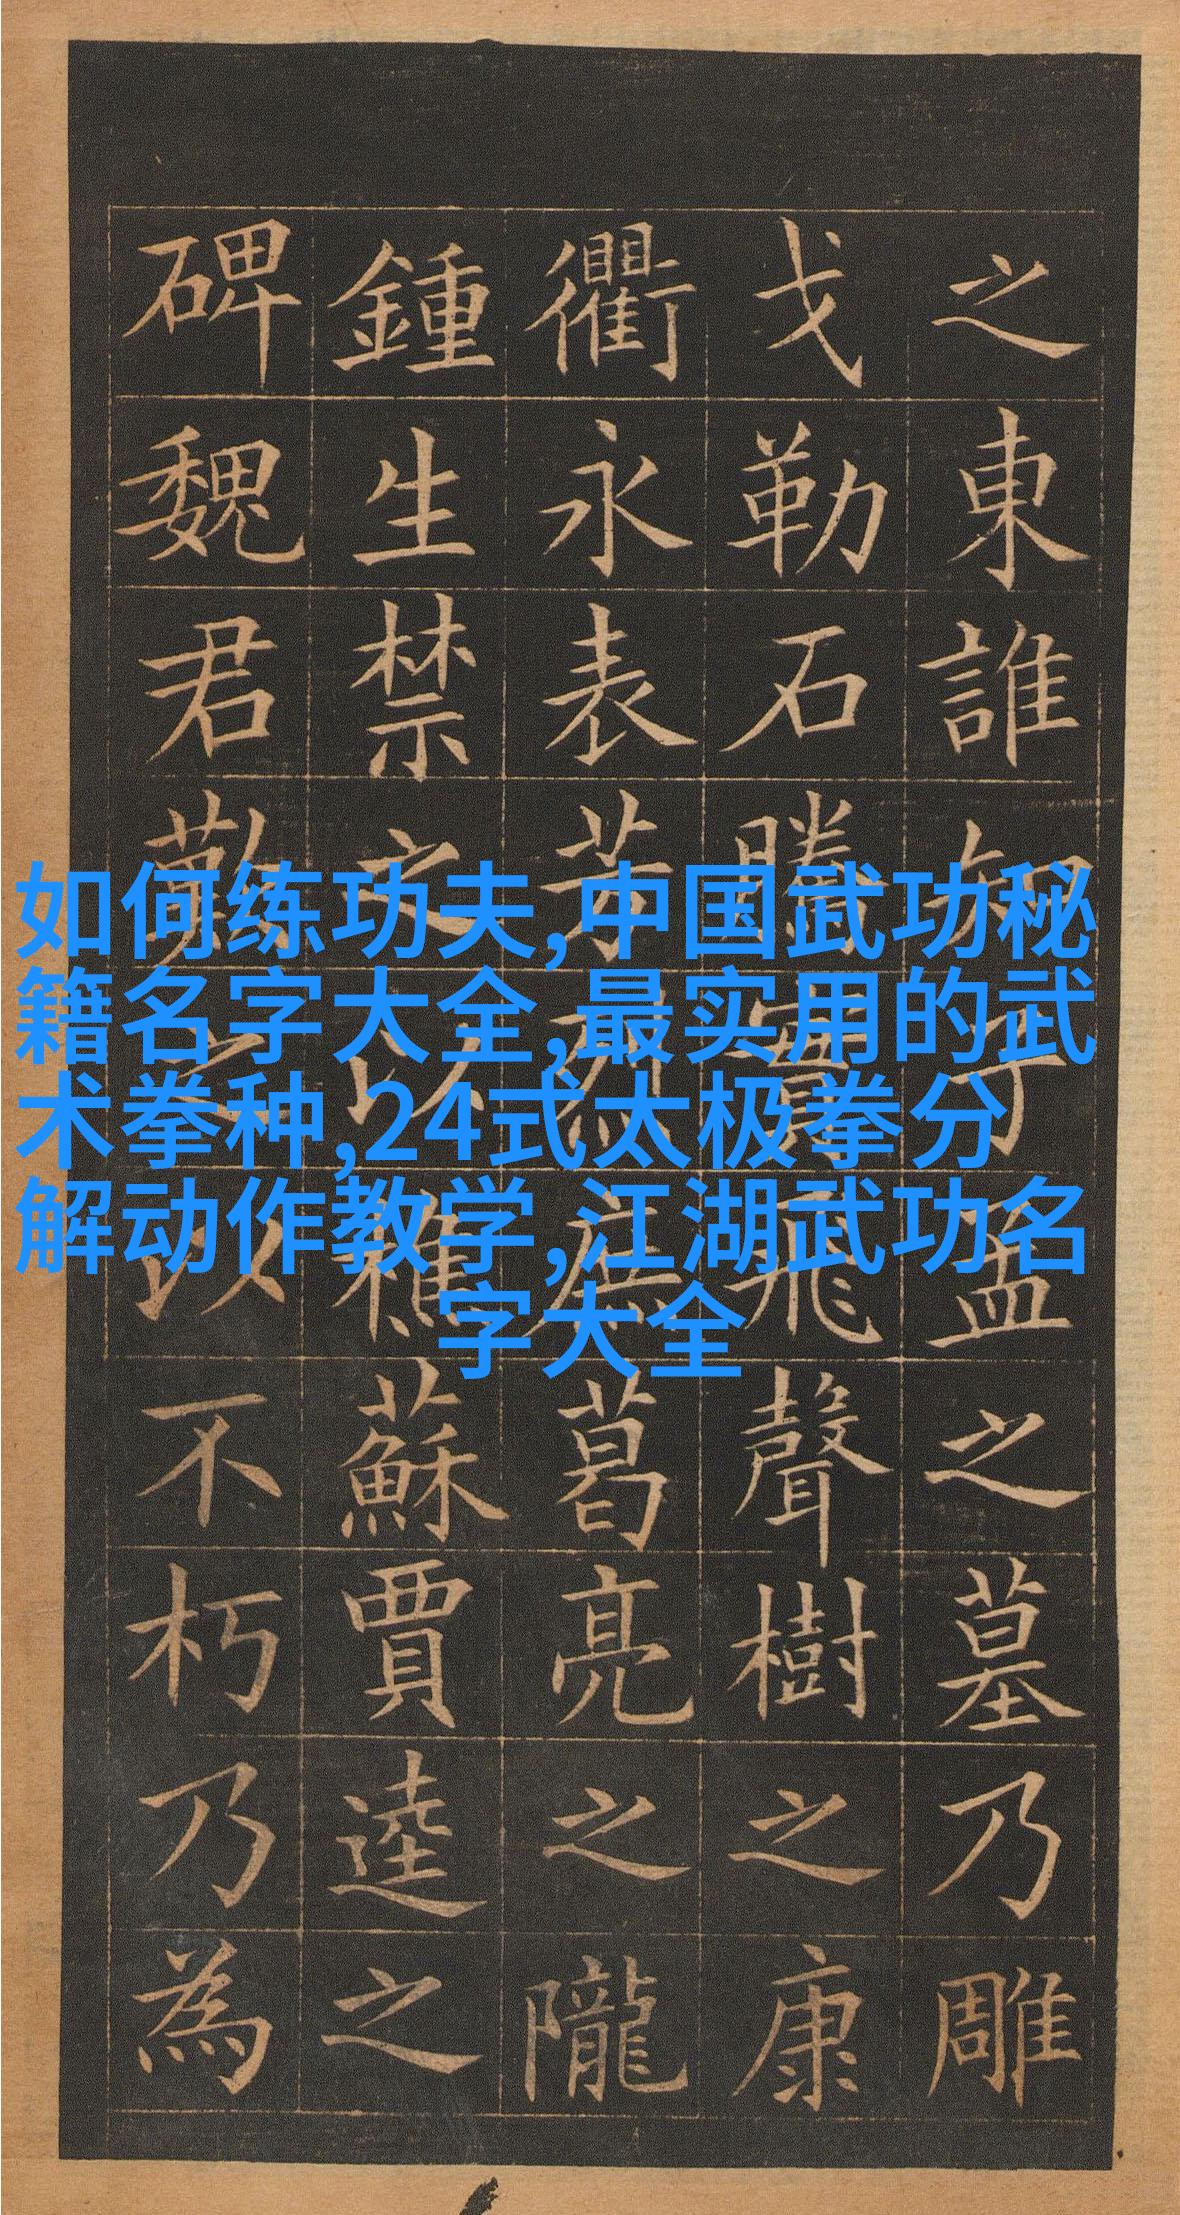 如何练功夫,中国武功秘
籍名字大全,最实用的武
术拳种,24式太极拳分
解动作教学,江湖武功名
字大全
之東誰知子孟之墓乃雕
戈勒石騰實飛聲樹之康
衢永表芳烈庶葛亮之隴
鍾生禁之以樵蘇賈逵之
碑魏君歎之以不朽乃為